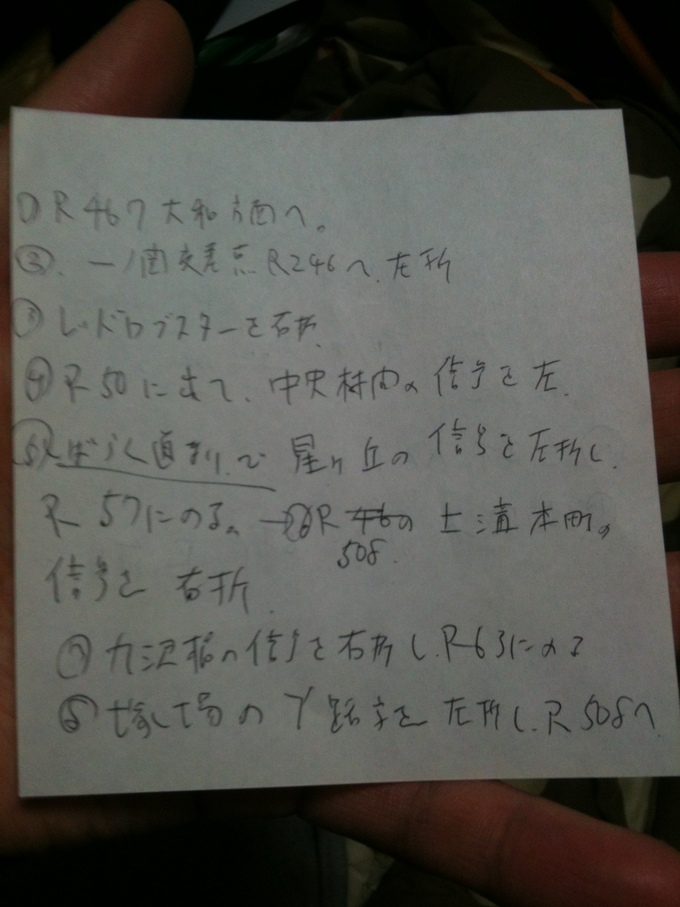 ① R467 大和方面へ。
②. 一ノ関交差点 R246へ. 左折
③ レッドロブスターを右折.
④ R50に出て、中央林間の信号を左.
⑤ しばらく直まりで 星ヶ丘の信号を左折し.
R 57にのる。→⑥R 46の 上溝本町の
508.
信号を 右折.
⑦ 九沢 の信号を右折し. R63にのる
⑧ 塚場の Y路字を 左折し. R508へ